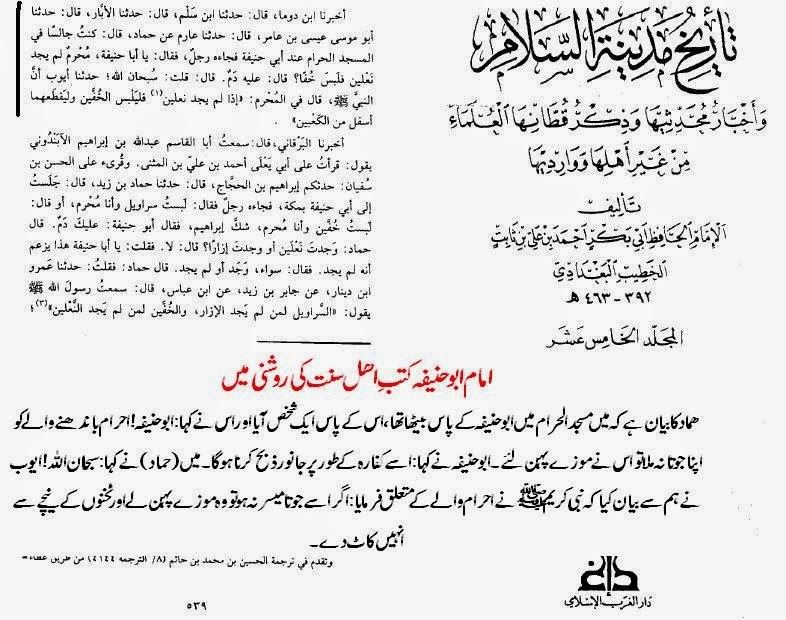 تاريخ مدينة السلام
وأخبار محدثيها وذكر قطانها العلماء
من غير أهلها ووارديها
تأليف
الإمام الحافظ أبي بكر أحمد بن علي بن ثابت
الخطيب البغدادي
٣٩٢ - ٤٦٣ هـ
المجلد الخامس عشر
أخبرنا ابن دوما، قال: حدثنا ابن سَلْم، قال: حدثنا الأبّار، قال: حدثنا
أبو موسى عيسى بن عامر، قال: حدثنا عارم عن حماد، قال: كنتُ جالسًا في
المسجد الحرام عند أبي حنيفة فجاءه رجلٌ، فقال: يا أبا حنيفة، مُحْرِمٌ لم يجد
نَعْلين فلَبسَ خُفًّا؟ قال: عليه دَمٌ. قال: قلت: سُبحان الله؛ حدثنا أيوب أنَّ
النبيَّ ﷺ، قال في المُحْرم: «إذا لم يجد نعلين(١) فليَلْبس الخُفَّين وليَقْطَعهما
أسفل من الكَعْبين» .
أخبرنا البَرْقاني، قال: سمعتُ أبا القاسم عبدالله بن إبراهيم الآبَنْدوني
يقول: قرأتُ على أبي يَعْلَى أحمد بن علي بن المثنى. وقُرىء على الحسن بن
سُفيان: حدثكم إبراهيم بن الحجاج، قال: حدثنا حماد بن زيد، قال: جَلَستُ
إلى أبي حنيفة بمكة، فجاءه رجلٌ فقال: لَبستُ سراويل وأنا مُحرم، أو قال:
لَبستُ خُفَّين وأنا مُحرم، شكَّ إبراهيم، فقال أبو حنيفة: عليكَ دَمٌ. قال
حماد: وَجدتَ نَعْلَين أو وجدتَ إزارًا؟ قال: لا. فقلت: يا أبا حنيفة هذا يزعم
أنه لم يجد. فقال: سواء، وَجَدَ أو لم يجد. قال حماد: فقلتُ: حدثنا عَمرو
ابن دينار، عن جابر بن زيد، عن ابن عباس، قال: سمعتُ رسولَ الله ﷺ
يقول: «السَّراويل لمن لم يَجد الإزار، والخُفَّين لمن لم يجد النَّعْلين»(٣)؛
امام ابو حنیفہ کتب اھل سنت کی روشنی میں
حماد کا بیان ہے کہ میں مسجد الحرام میں ابو حنیفہ کے پاس بیٹھا تھا، اس کے پاس ایک شخص آیا اور اس نے کہا: ابو حنیفہ! احرام باندھنے والے کو
اپنا جوتا نہ ملا تو اس نے موزے پہن لئے۔ ابو حنیفہ نے کہا: اسے کفارہ کے طور پر جانور ذبح کرنا ہوگا۔ میں (حماد) نے کہا: سبحان اللہ! ایوب
نے ہم سے بیان کیا کہ نبی کریم ﷺ نے احرام والے کے متعلق فرمایا: اگر اسے جوتا میسر نہ ہو تو وہ موزے پہن لے اور ٹخنوں کے نیچے سے
انہیں کاٹ دے۔
وتقدم في ترجمة الحسين بن محمد بن حاتم (٨/ الترجمة ٤١٤٤) من طريق عطاء =
دار الغرب الإسلامي
٥٣٩